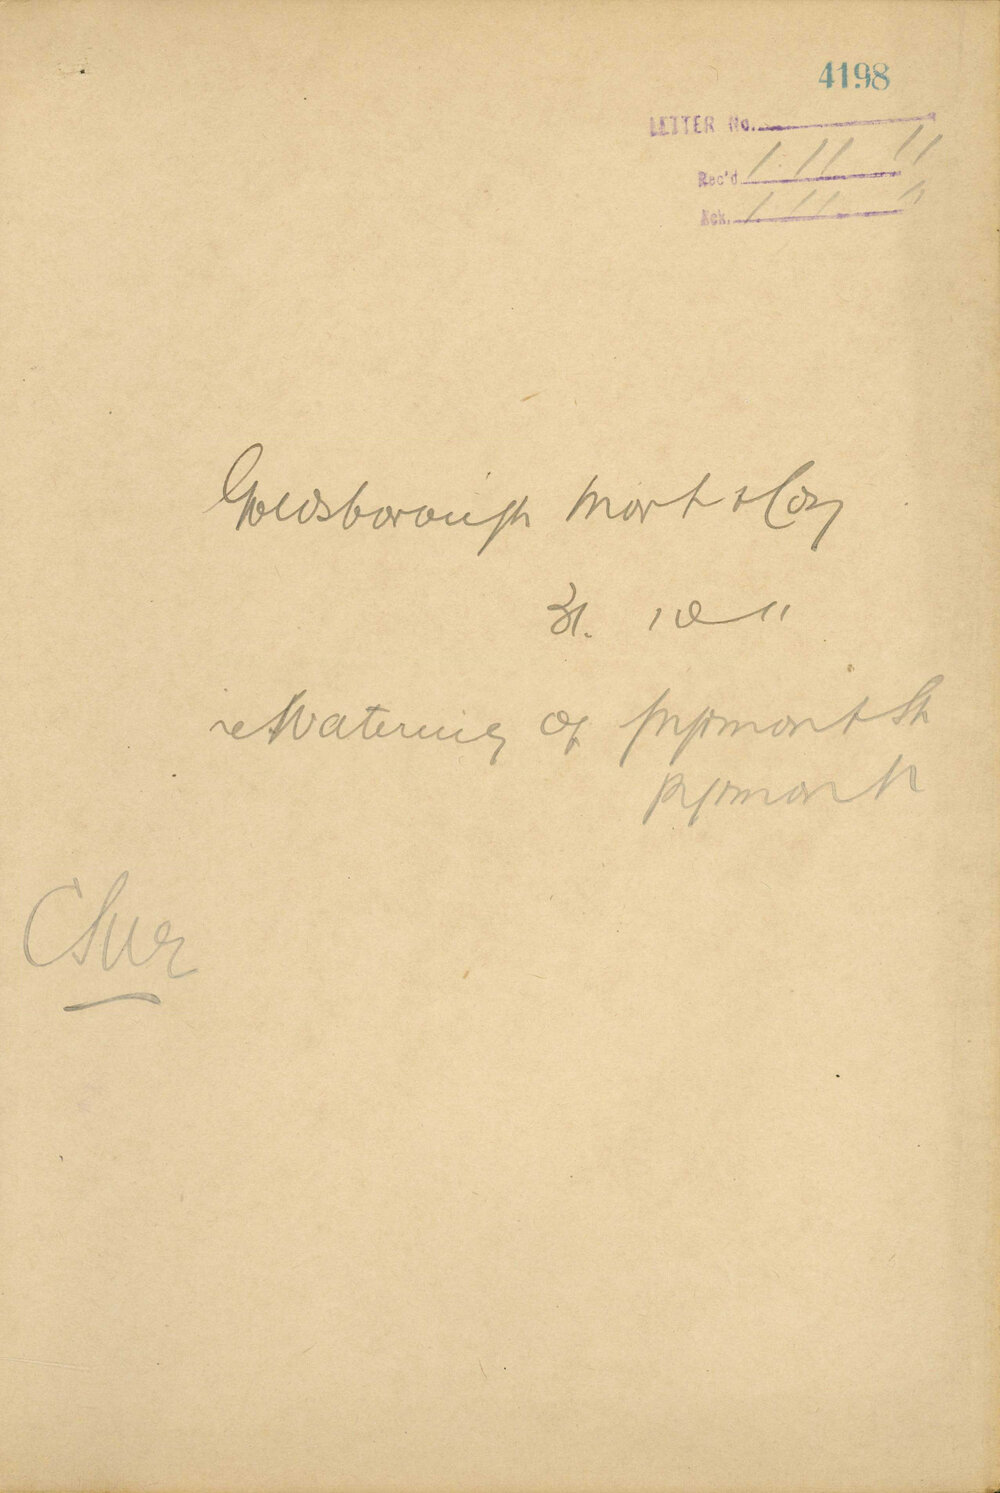 4198
LETTER No.
Rec'd 1 11 11
Ack. 1 11 11
Goldsborough Mort & Coy
31. 10 11
re Watering of Pyrmont St
Pyrmont
C Sur